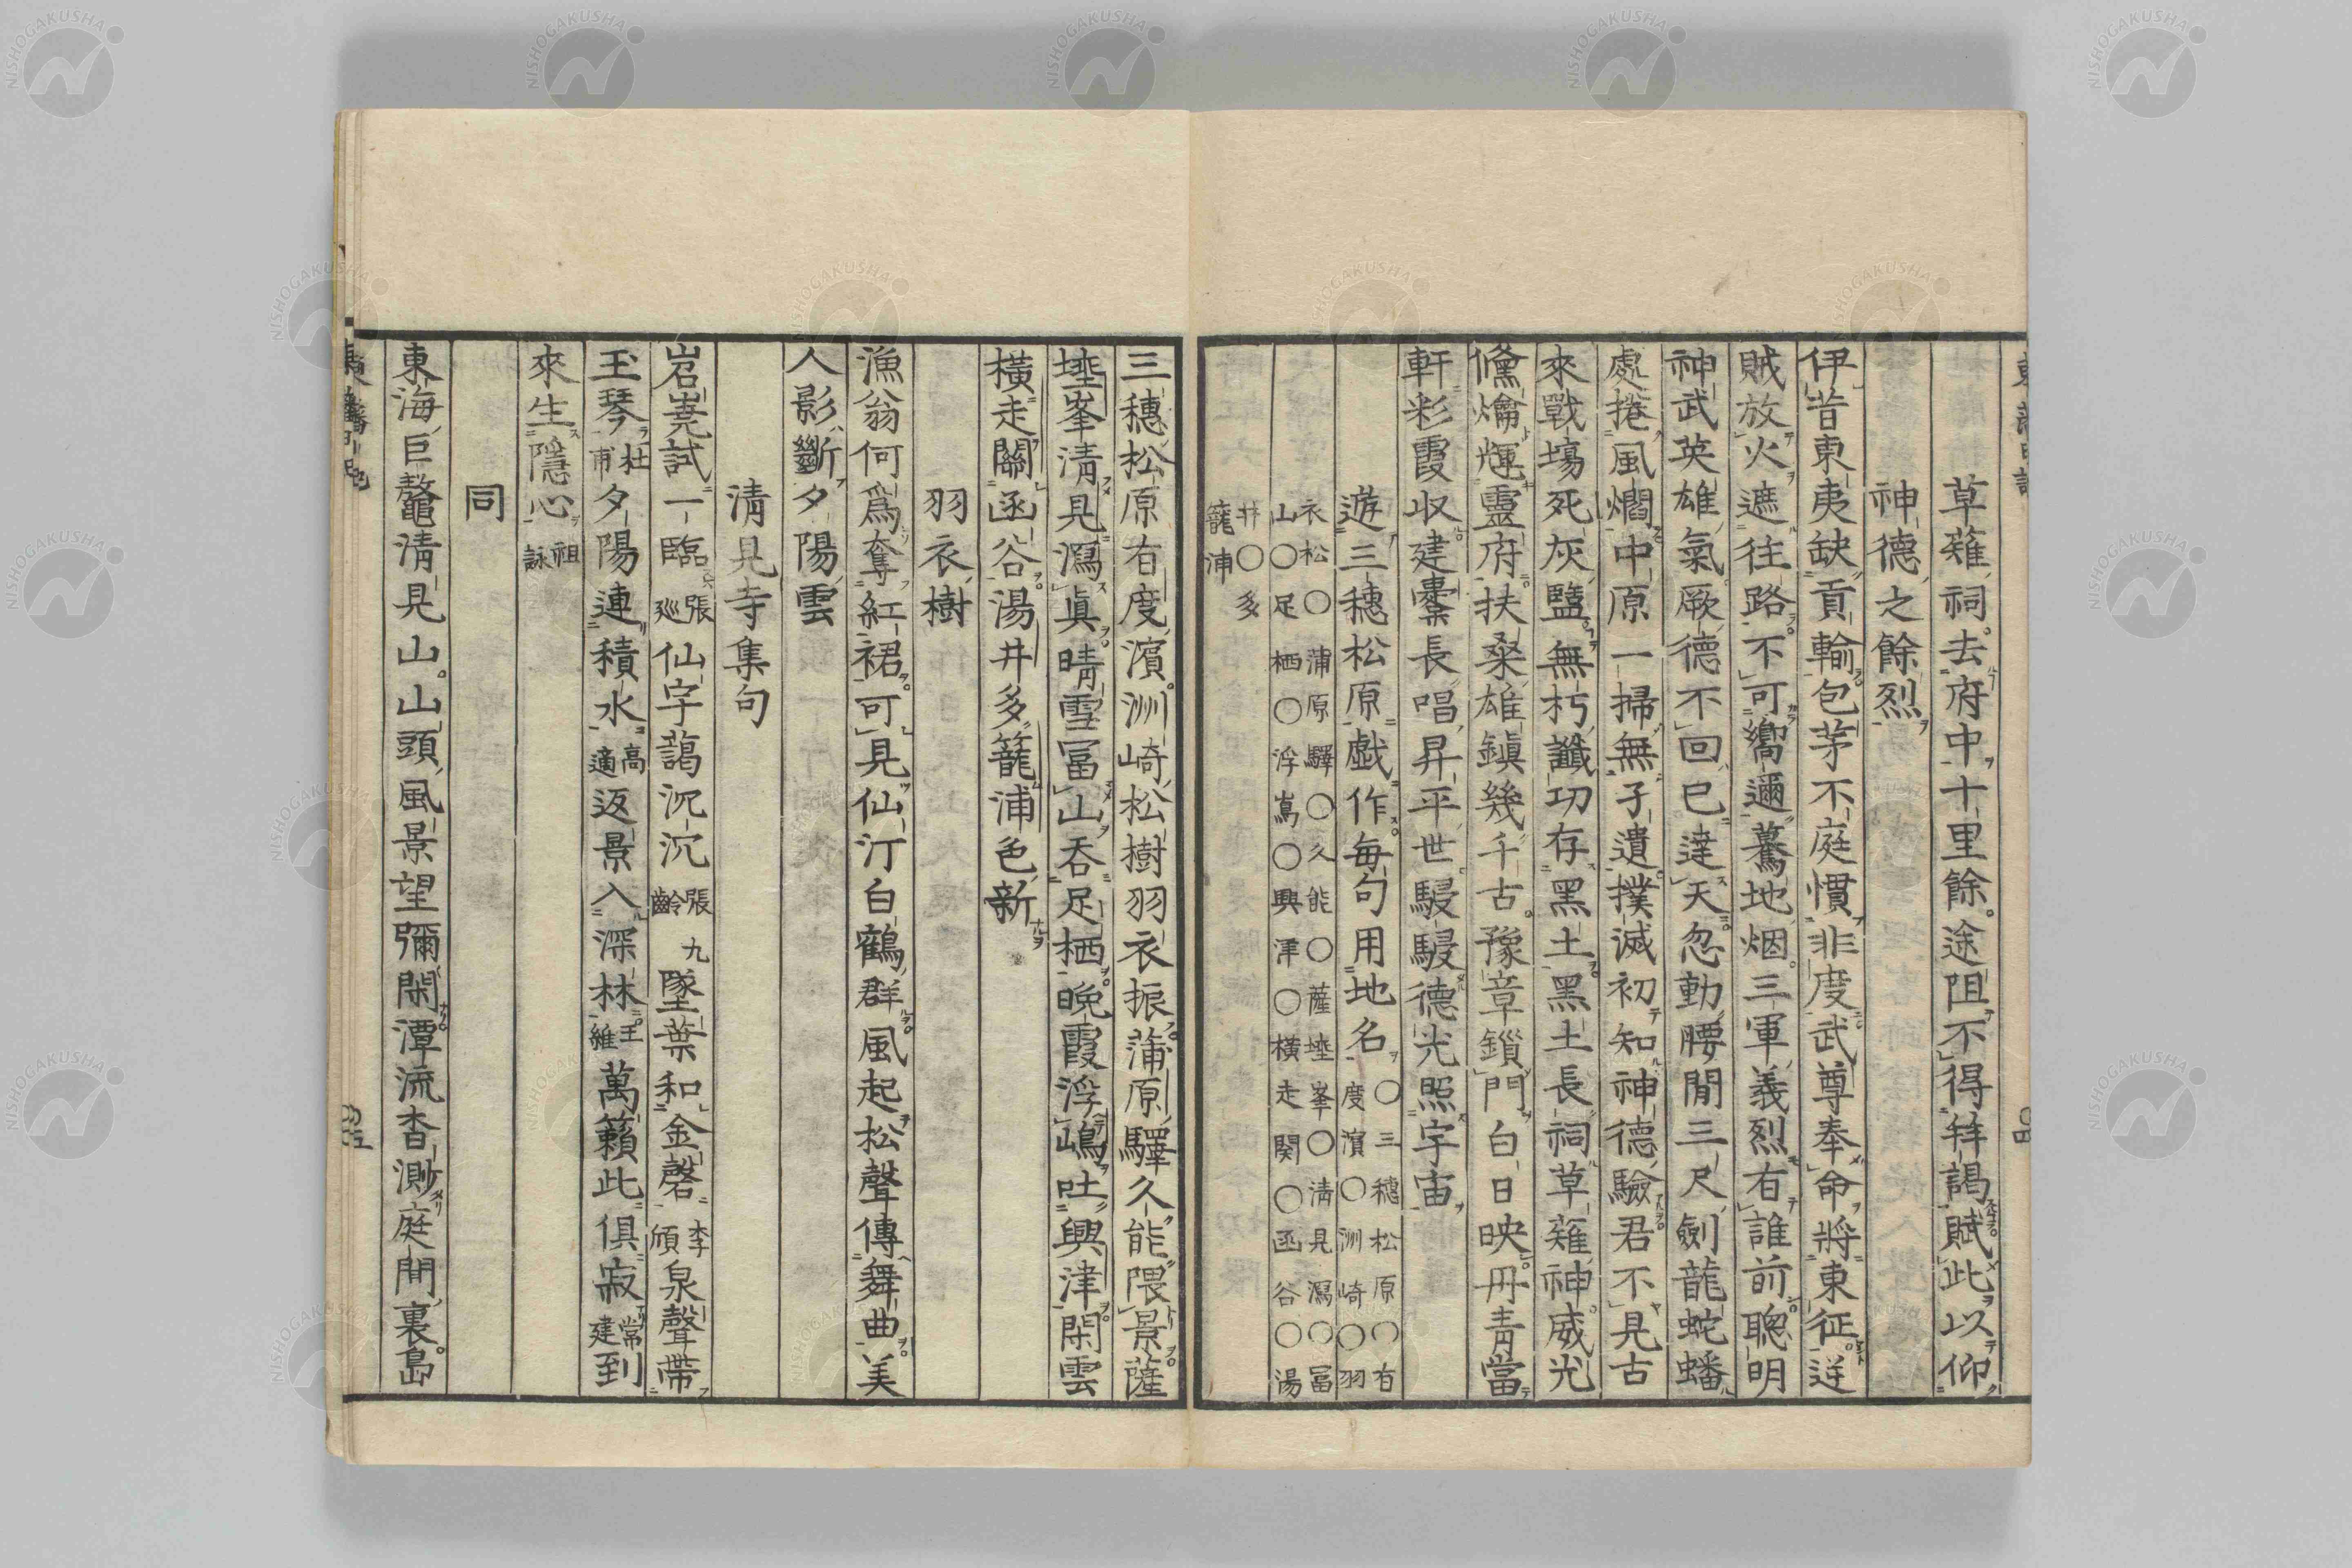 草薙祠去府中十里餘途阻不得拜謁賦此以仰
神德之餘烈
伊昔東夷缺貢輸包茅不庭慣非度武尊奉命將東征逆
賊放火遮往路不可嚮邇驀地烟三軍義烈有誰前聰明
神武英雄氣厥德不回已達天忽動腰間三尺劍龍蛇蟠
處捲風爓中原一掃無孑遺撲滅初知神德驗君不見古
來戰場死灰盬無朽讖功存黑土黑土長祠草薙神威光
儵爚輝靈府扶桑雄鎮幾千古豫章鎻門白日映丹青當
軒彩霞收建櫜長唱昇平世駸駸德光照宇宙
遊三穗松原戯作每句用地名○三穗松原○有度濱○洲崎○羽
衣松○蒲原驛○久能○薩埵峯○淸見瀉○冨山○足栖○浮嶌○興津○横走関○函谷○湯
井○多籠浦
三穗松原有度濱洲崎松樹羽衣振蒲原驛久能隈景薩
埵峯淸見瀉眞晴雪冨山呑足栖晚霞浮嶋吐興津閑雲
橫走關函谷湯井多籠浦色新
羽衣樹
漁翁何爲奪紅裙可見仙汀白鶴群風起松聲傳舞曲美
人影斷夕陽雲
淸見寺集句
岧嶤試一臨張巡仙宇藹沉沉張九齡墜葉和金磬李頎泉聲帶
玉琴杜甫夕陽連積水高適返景入深林王維萬籟此俱寂常建到
來生隱心祖詠
同
東海巨鼇淸見山山頭風景望彌閑潭流杳測庭間裏島